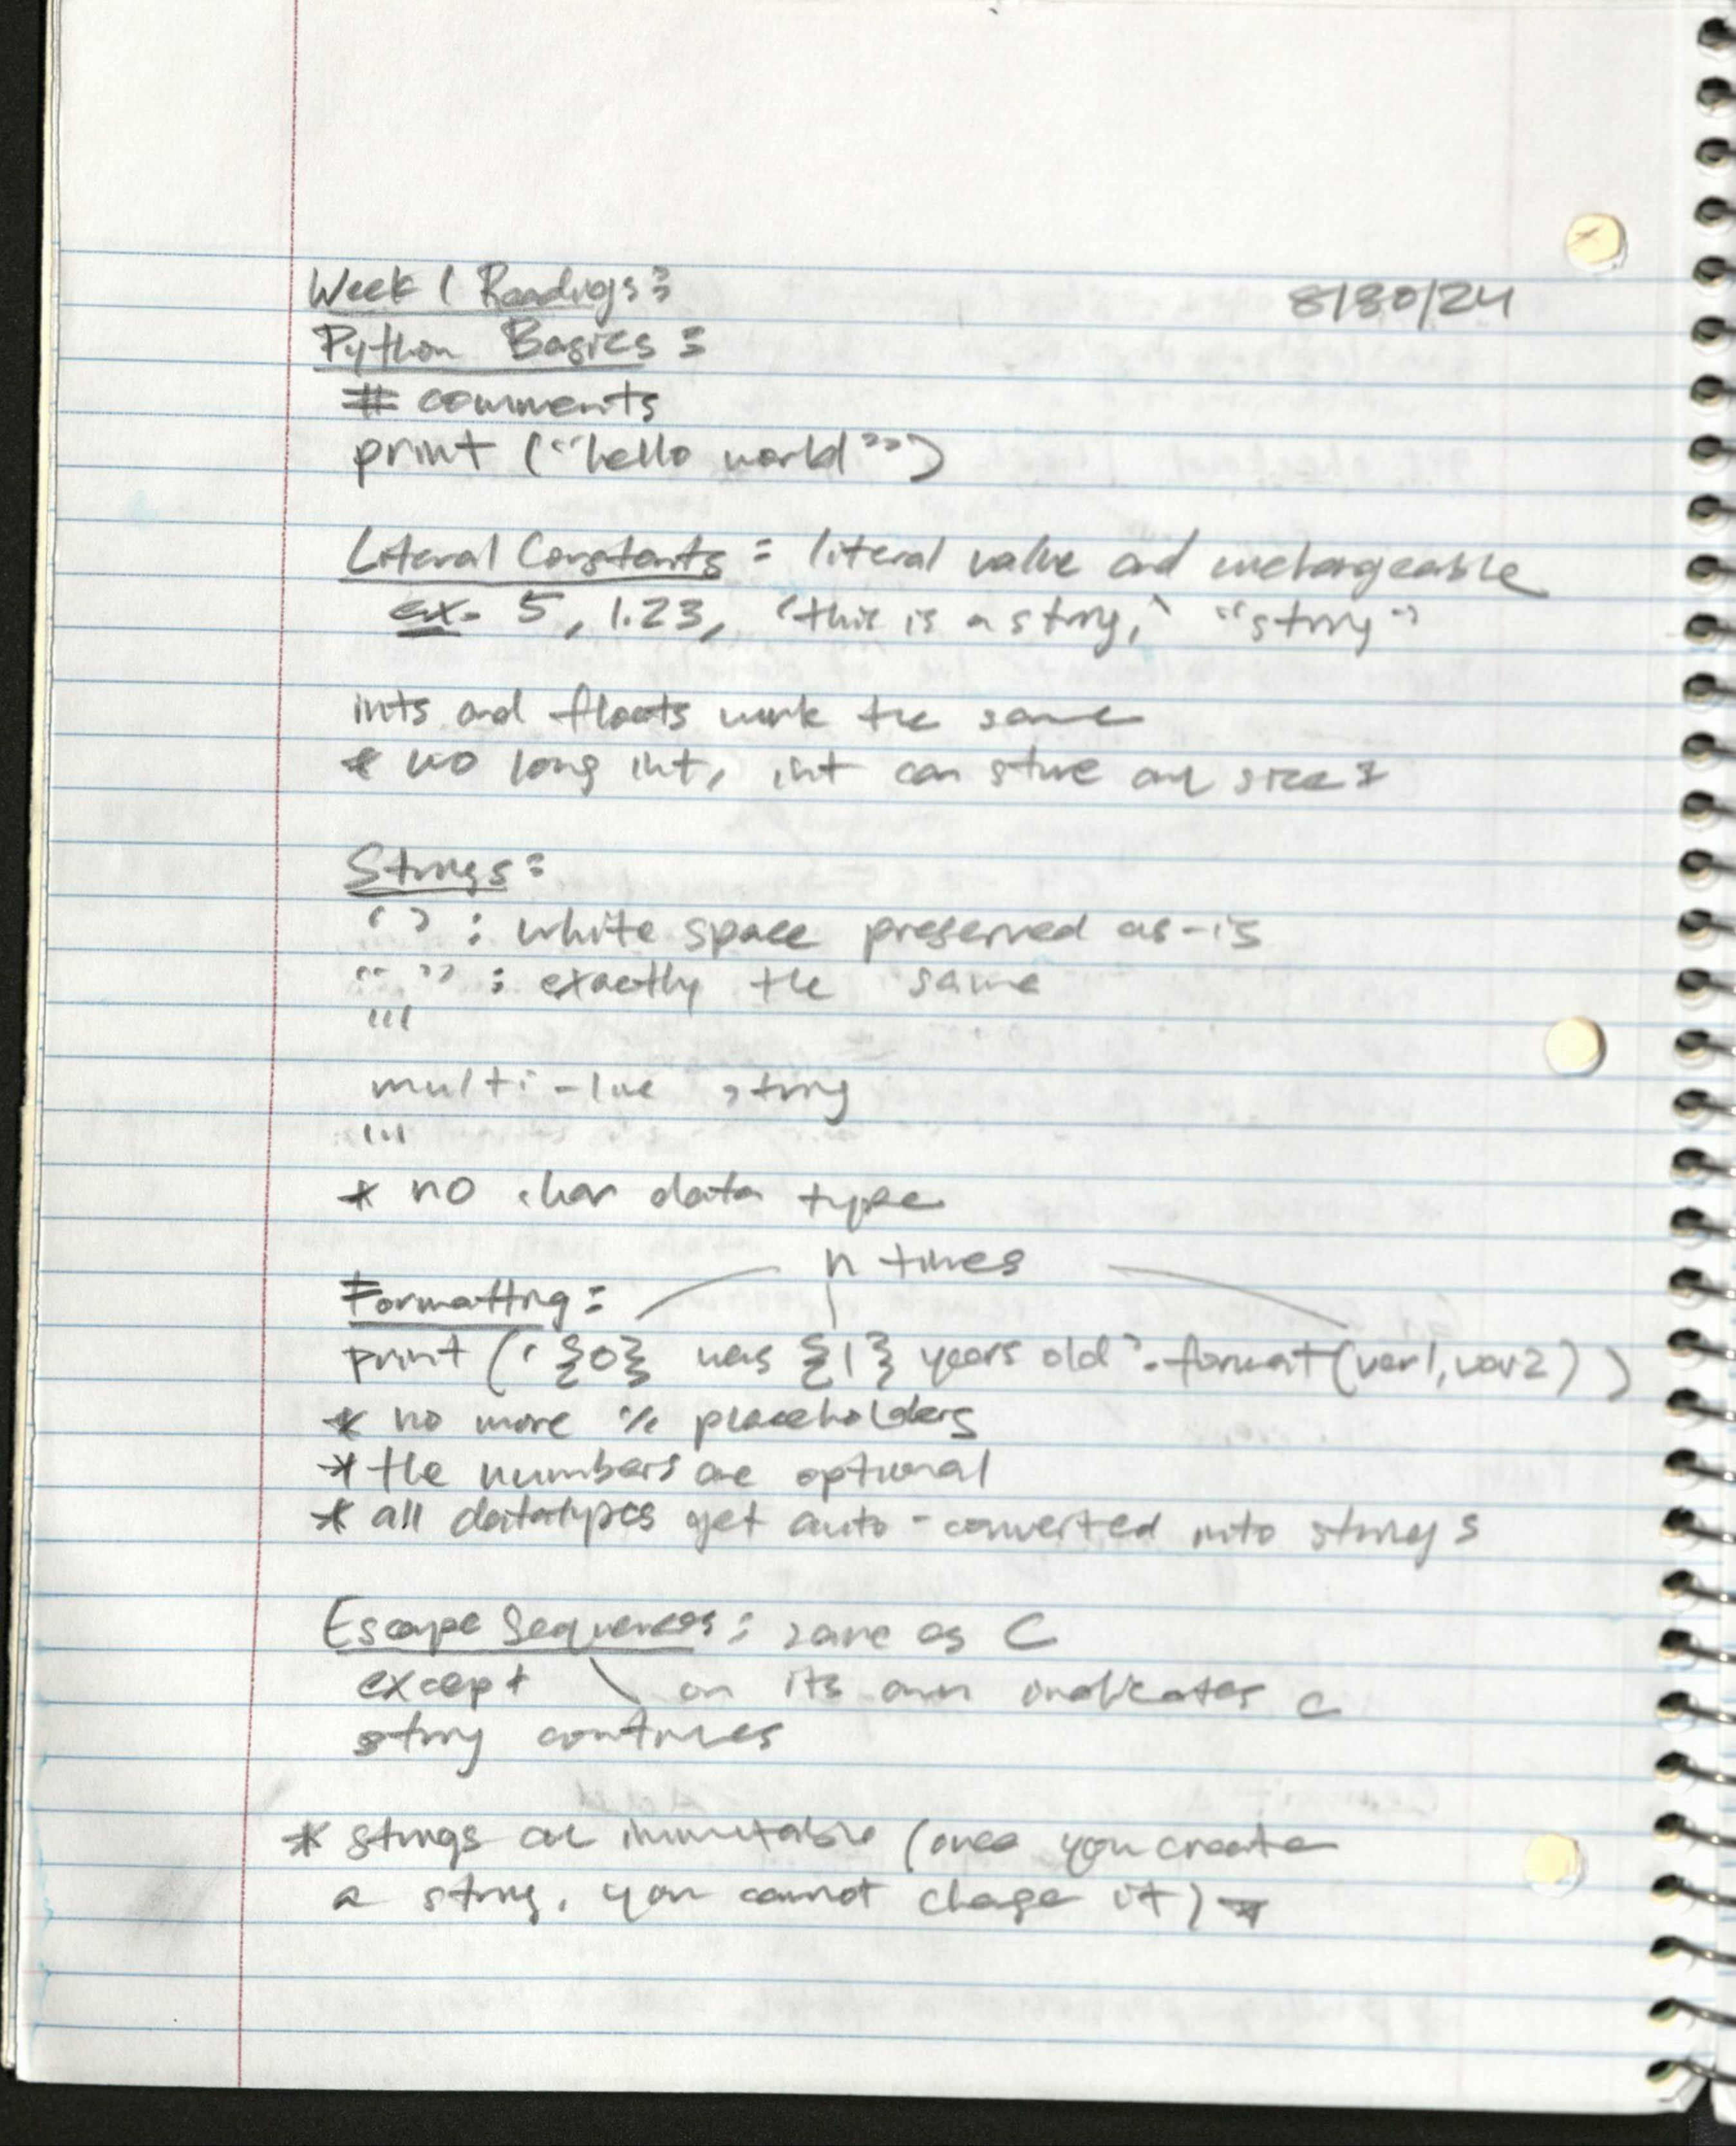 Week 1 Readings: 8/30/24
Python Basics:
# comments
print ("hello world")
Literal Constants: literal value and unchangeable
ex. 5, 1.23, 'this is a string,' "string"
ints and floats work the same
* no long int, int can store any size *
Strings:
' ' : white space preserved as-is
" " : exactly the same
'''
multi-line string
'''
* no char data type
n times
Formatting:
print (' {0} was {1} years old'.format(var1, var2) )
* no more % placeholders
* the numbers are optional
* all datatypes get auto-converted into strings
Escape Sequences: same as C
except \ on its own indicates a
string continues
* strings are immutable (once you create
a string, you cannot change it) *